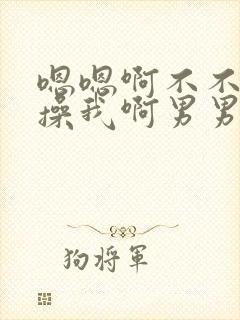 嗯嗯啊不不
操我啊男男
狗将軍